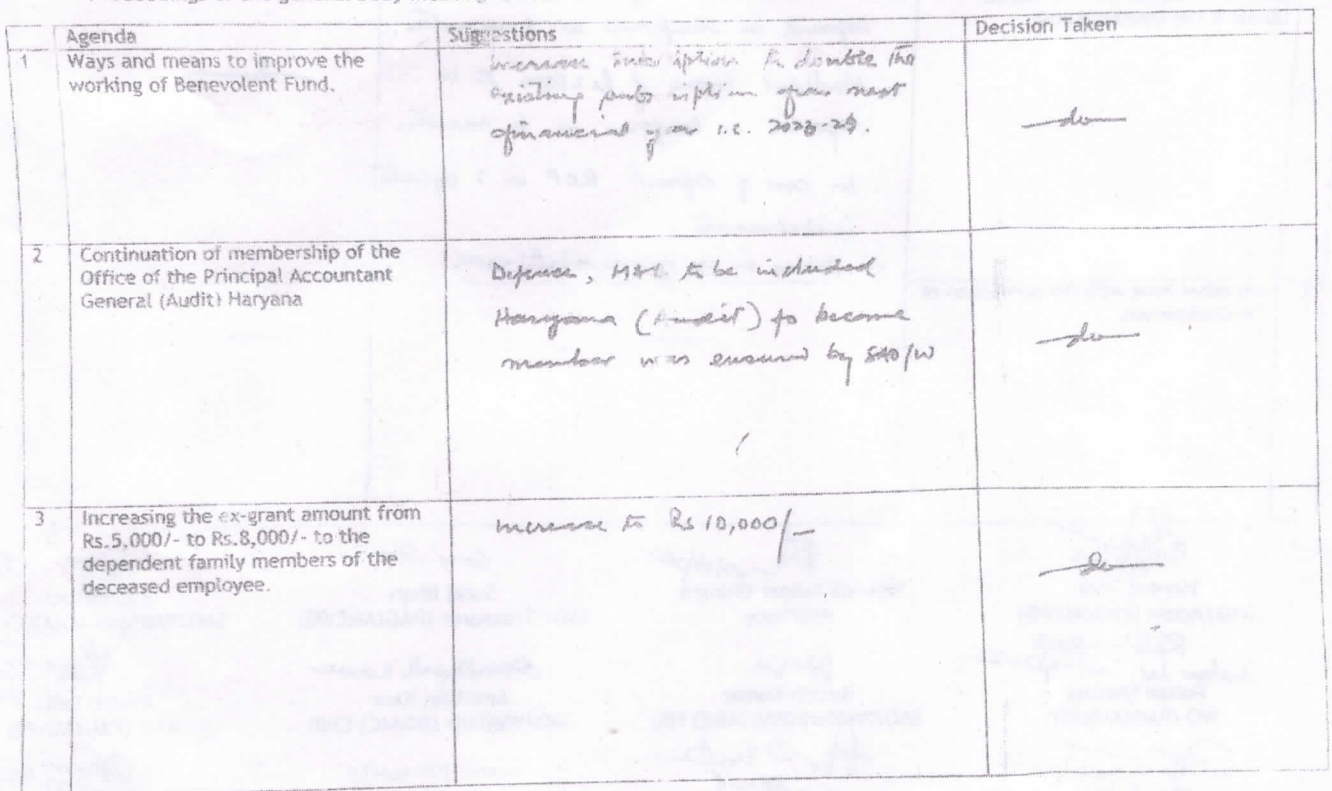 Agenda
Suggestions
Decision Taken
1
Ways and means to improve the
working of Benevolent Fund.
increase subscription to double the
existing subscription from next
financial year i.e.
do
2
Continuation of membership of the
Office of the Principal Accountant
General (Audit) Haryana
Defence, to be included
Haryana (Audit) to become
member was ensured by SAO/W
do
3
Increasing the ex-grant amount from
Rs.5,000/- to Rs.8,000/- to the
dependent family members of the
deceased employee.
increase to Rs 10,000/-
do